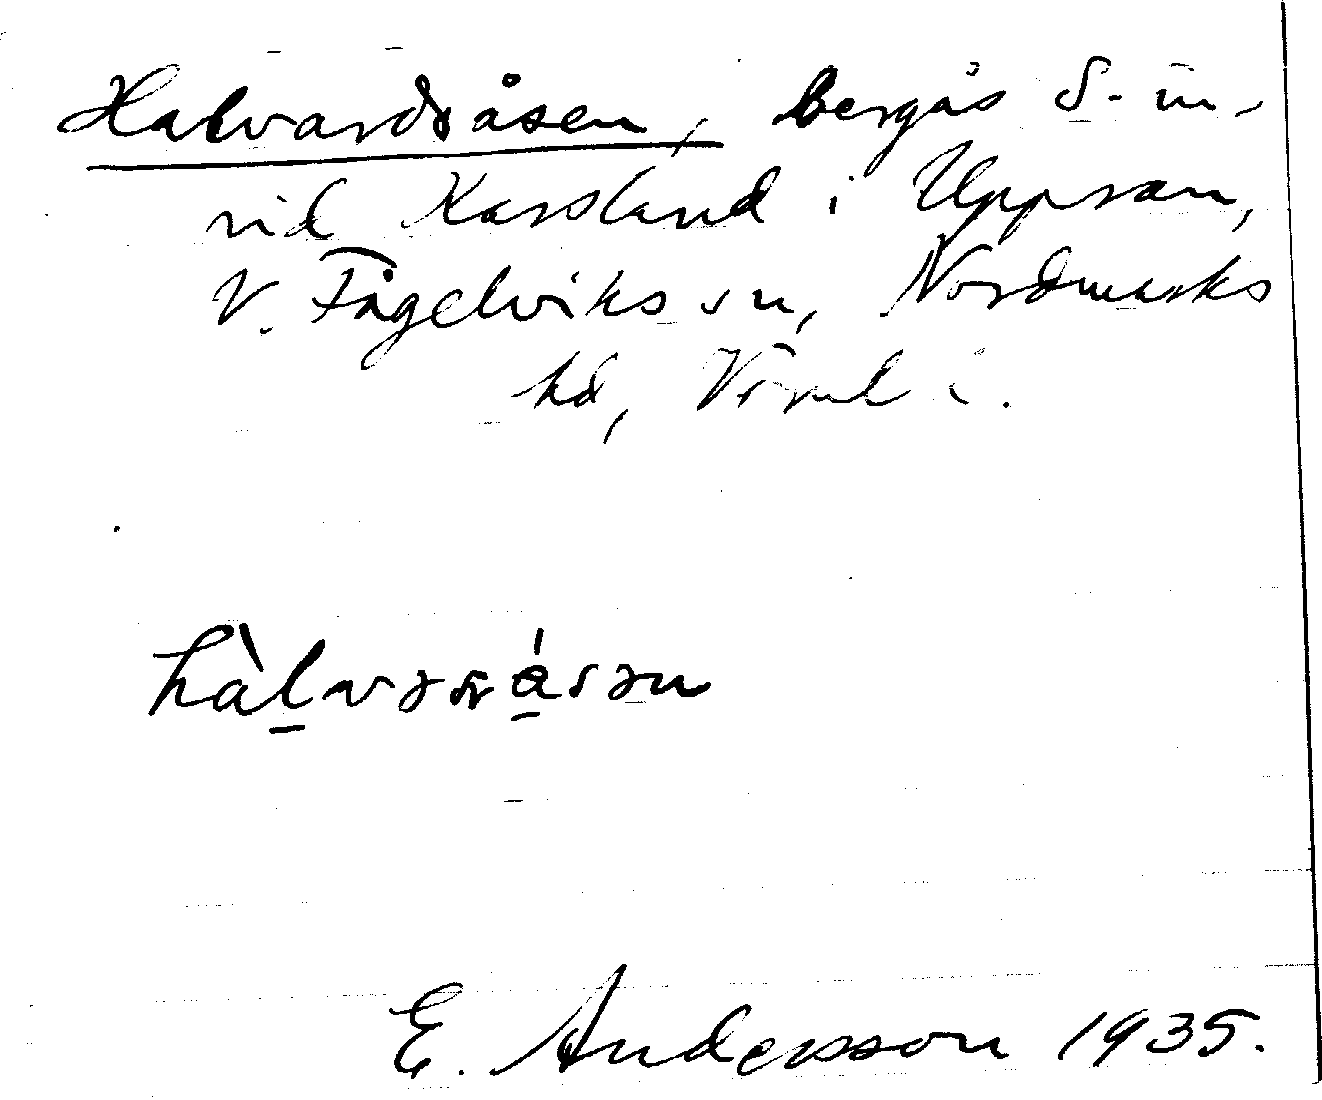 Halvardsåsen, bergås S. in-
vid Karsland i Uppran,
V. Fågelviks sn, Nordmarks
hd, Vrml.
hàlvərsåsən
E. Andersson 1935.